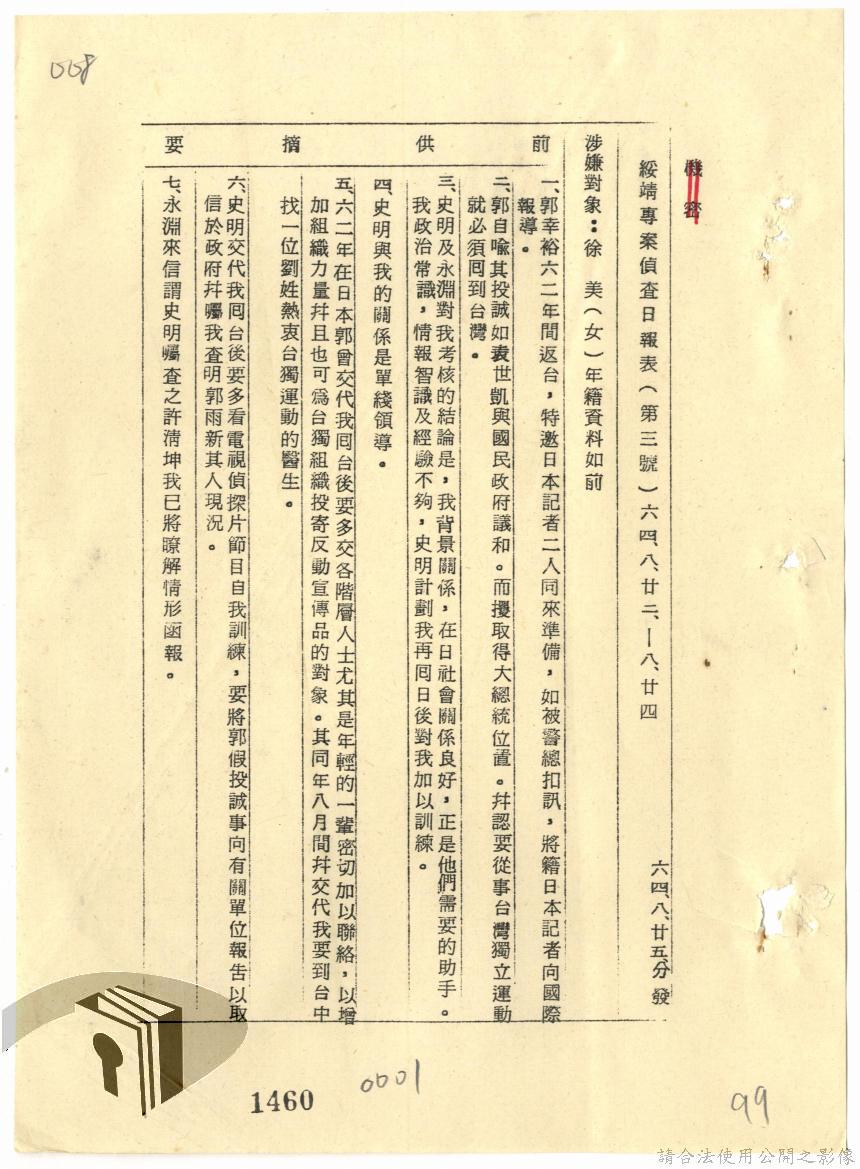 008
機密
綏靖專案偵查日報表(第三號)六四、八、廿二、—八、廿四
六四、八、廿五、分發
涉嫌對象:徐 美(女)年籍資料如前
前供摘要
一、郭幸裕六二年間返台,特邀日本記者二人同來準備,如被警總扣訊,將籍日本記者向國際
報導。
二、郭自喩其投誠如袁世凱與國民政府議和。而攫取得大總統位置。幷認要從事台灣獨立運動
就必須囘到台灣。
三、史明及永淵對我考核的結論是,我背景關係,在日社會關係良好,正是他們需要的助手。
我政治常識,情報智識及經驗不夠,史明計劃我再囘日後對我加以訓練。
四、史明與我的關係是單綫領導。
五、六二年在日本郭曾交代我囘台後要多交各階層人士尤其是年輕的一輩密切加以聯絡,以增
加組織力量幷且也可爲台獨組織投寄反動宣傳品的對象。其同年八月間幷交代我要到台中
找一位劉姓熱衷台獨運動的醫生。
六、史明交代我囘台後要多看電視偵探片節目自我訓練,要將郭假投誠事向有關單位報告以取
信於政府幷囑我查明郭雨新其人現況。
七、永淵來信謂史明囑查之許淸坤我已將瞭解情形函報。
1460
0001
99
請合法使用公開之影像